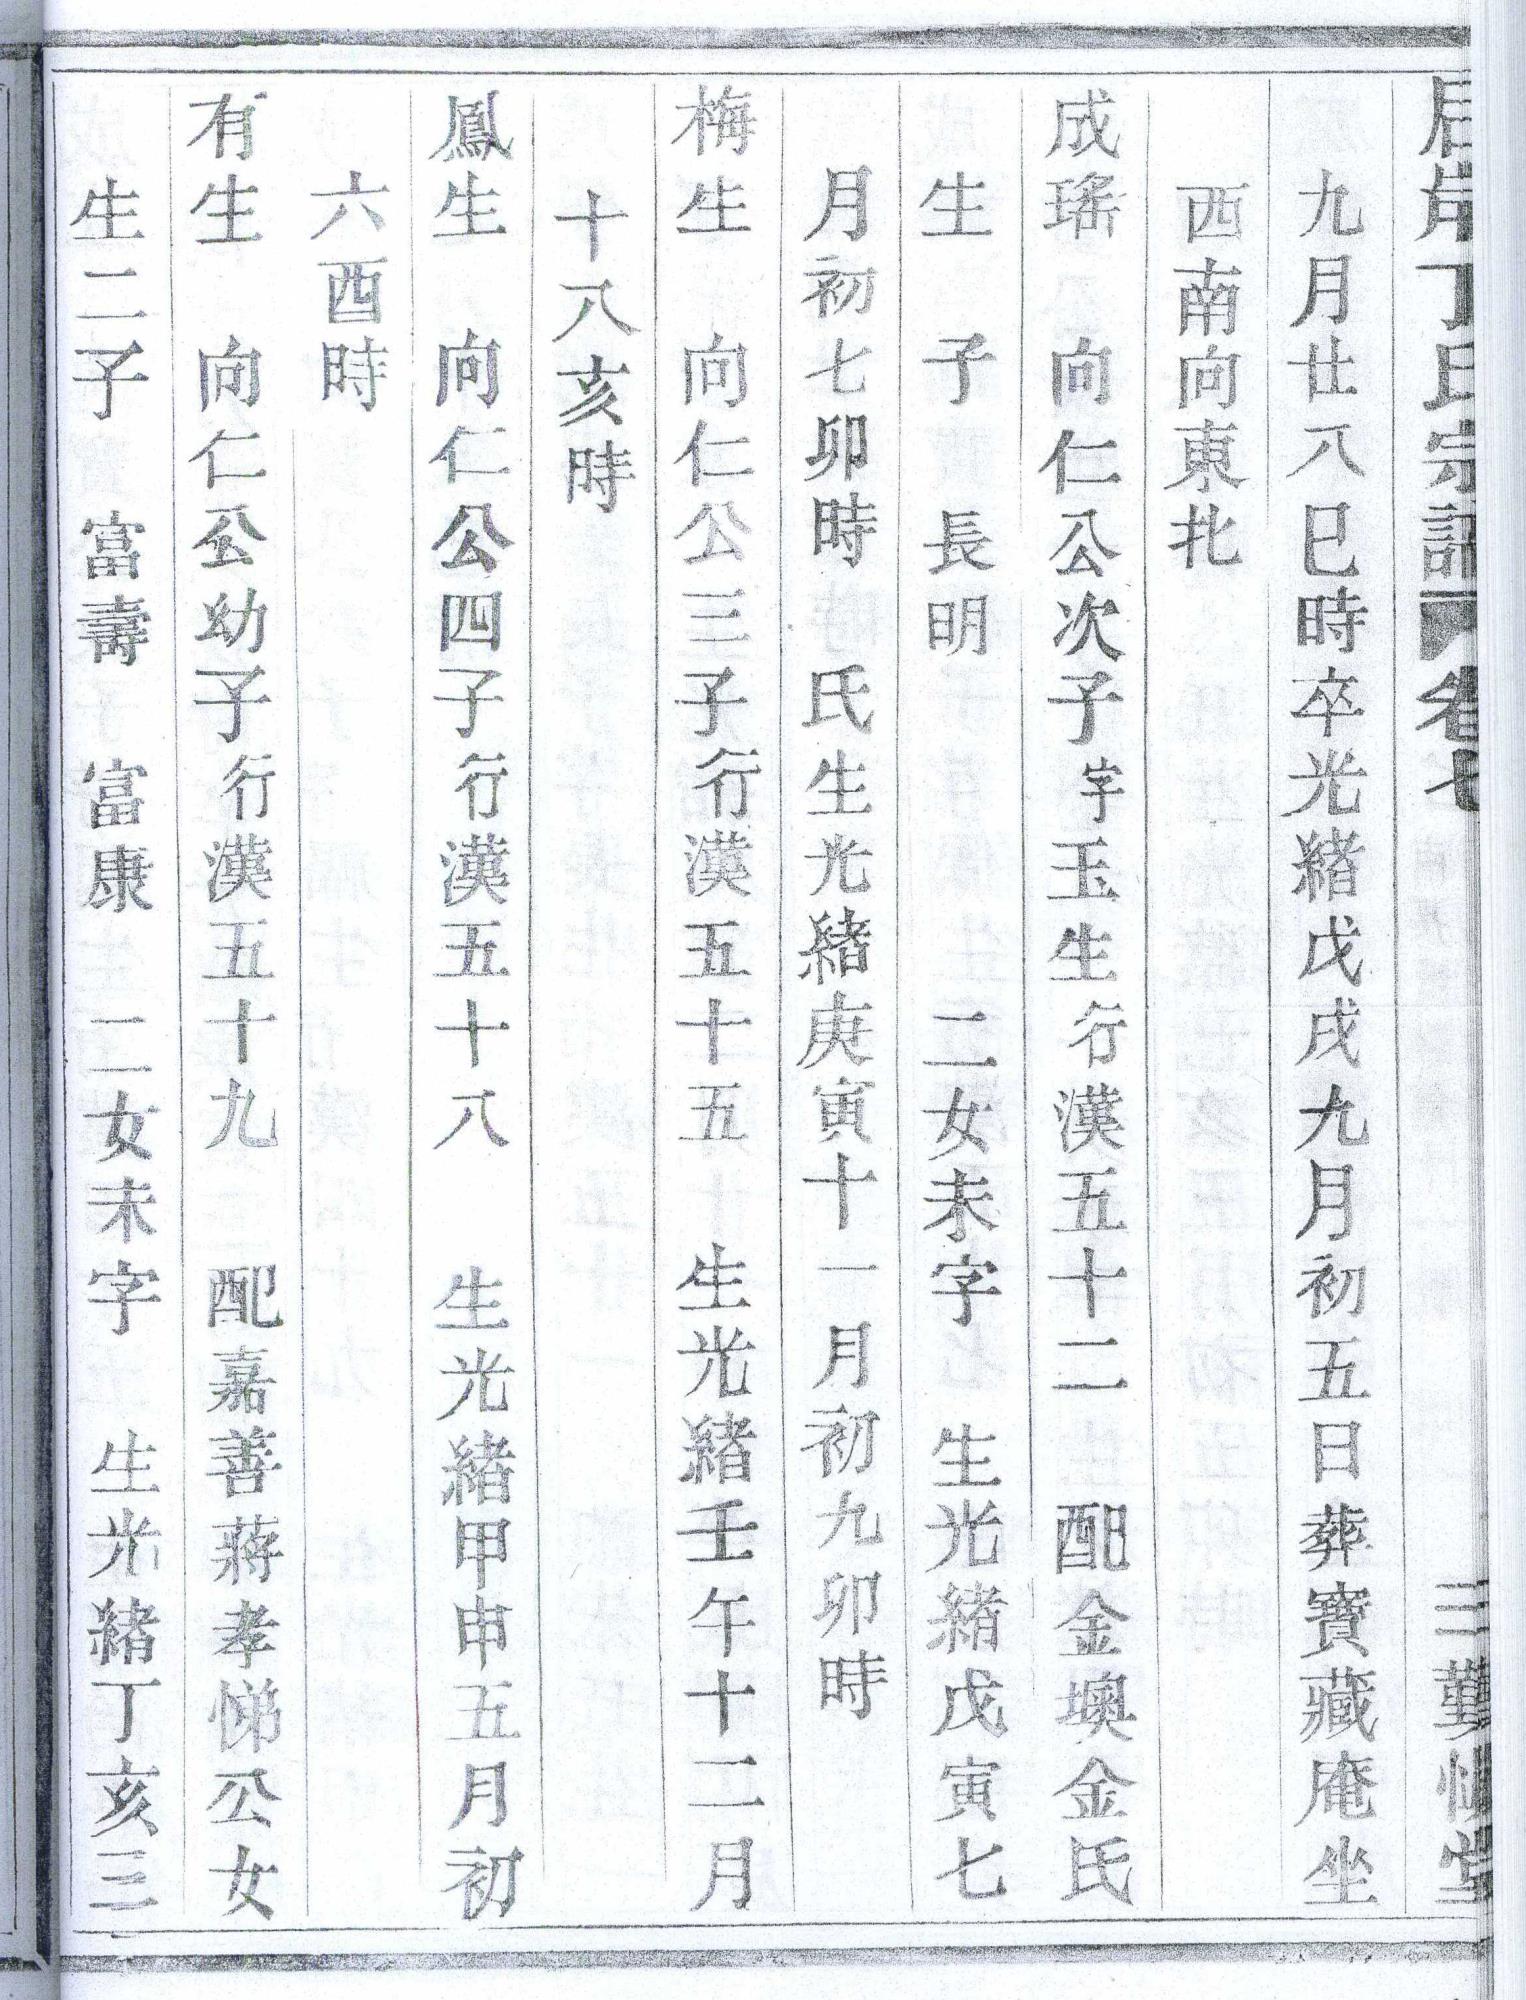 丁氏宗譜 卷七 三 勤慎堂
九月廿八巳時卒光緒戊戌九月初五日葬寶藏庵坐
西南向東北
成瑤 向仁公次子字玉生行漢五十二 配金墺金氏
生 子 長明 二女未字 生光緒戊寅七
月初七卯時 氏生光緒庚寅十一月初九卯時
梅生 向仁公三子行漢五十五 生光緒壬午十二月
十八亥時
鳳生 向仁公四子行漢五十八 生光緒甲申五月初
六酉時
有生 向仁公幼子行漢五十九 配嘉善蔣孝悌公女
生二子 富壽 富康 二女未字 生光緒丁亥三